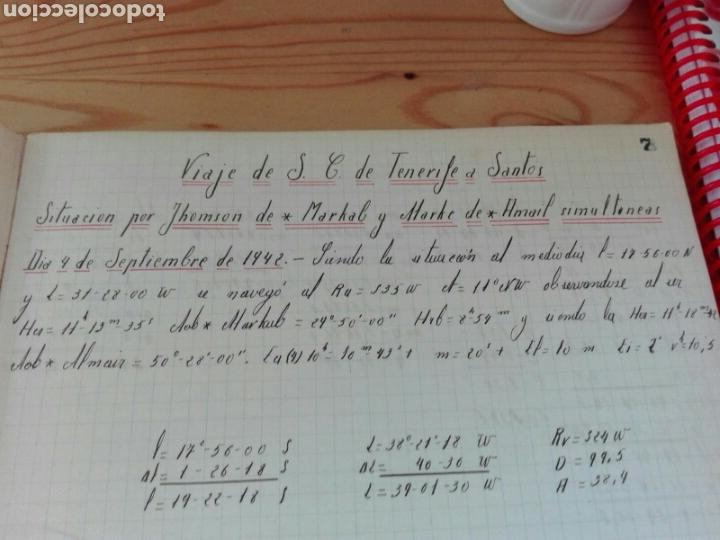 todocoleccion
7
Viaje de S. C. de Tenerife a Santos
Situacion por Thomson de * Markab y Markc de * Amair simultoneas
Dia 4 de Septiembre de 1942.- Siendo la situacion al mediodia l = 17-56-00 N
y L = 31-28-00 W se navegó al Ra = S35W observandose al ser
Aob * Markab = 24°-50'-00" y siendo la
Aob * Almair = 50°-28'-00". m = 20' +
l = 17°-56-00 S
Δl = 1-26-18 S
l = 19-22-18 S
L = 38°-21'-18 W
ΔL = 40-30 W
L = 39-01-30 W
Rv = S24W
D = 99,5
A = 38,4